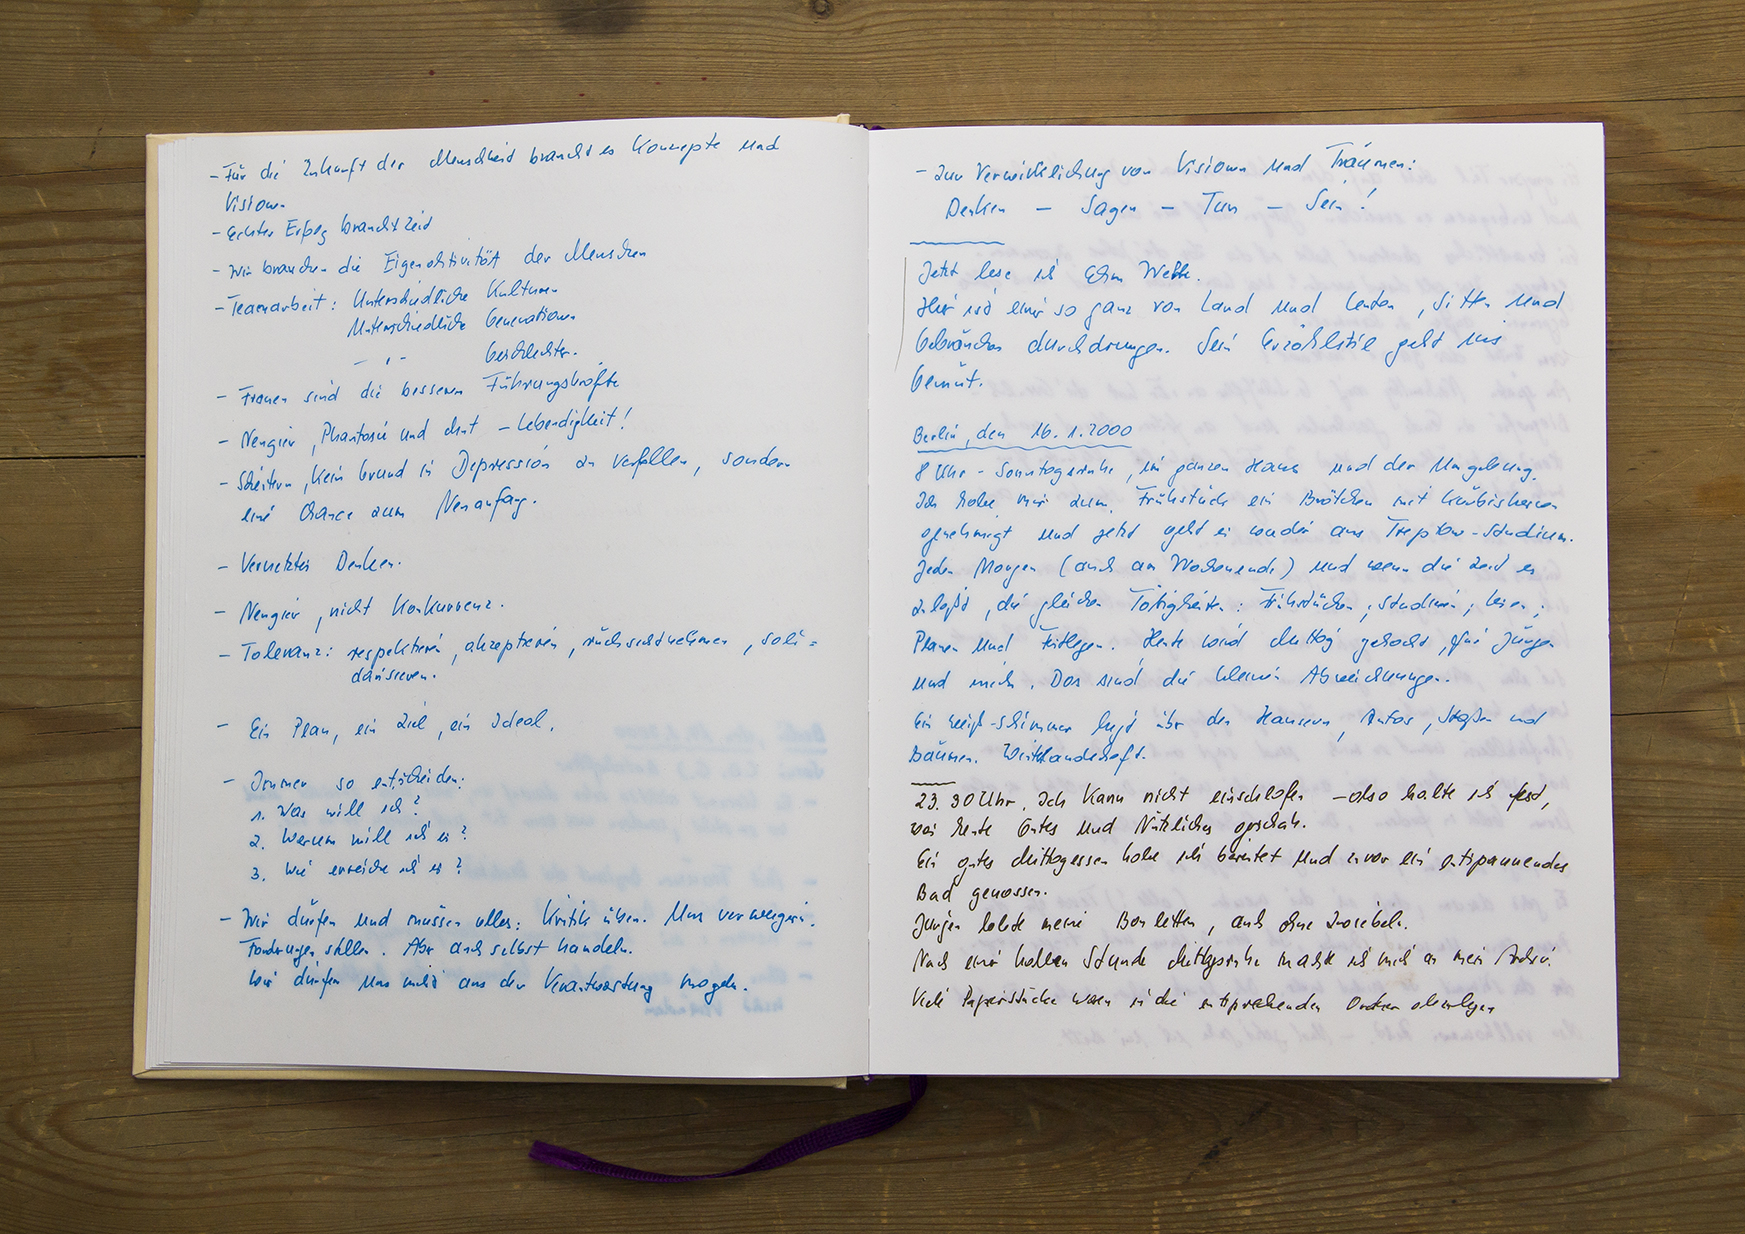 - Für die Zukunft der Menschheit braucht es Konzepte und
Visionen
- Echter Erfolg braucht Zeit
- Wir brauchen die Eigenaktivität der Menschen
- Teamarbeit: Unterschiedliche Kulturen
Unterschiedliche Generationen
- „ - Geschlechter.
- Frauen sind die besseren Führungskräfte
- Neugier, Phantasie und Mut - Lebendigkeit!
- Scheitern, kein Grund in Depression zu verfallen, sondern
eine Chance zum Neuanfang.
- Vernetztes Denken.
- Neugier, nicht Konkurrenz.
- Toleranz: respektieren, akzeptieren, rücksichtnehmen, soli=
darisieren.
- Ein Plan, ein Ziel, ein Ideal.
- Immer so entscheiden:
1. Was will ich?
2. Warum will ich es?
3. Wie erreiche ich es?
- Wir dürfen und müssen alles: Kritik üben. Uns verweigern.
Forderungen stellen. Aber auch selbst handeln.
Wir dürfen uns nicht aus der Verantwortung mogeln.
- Zur Verwirklichung von Visionen und Träumen:
Denken - Sagen - Tun - Sein!
Jetzt lese ich Ehm Welk.
Hier ist einer so ganz von Land und Leuten, Sitten und
Gebräuchen durchdrungen. Sein Erzählstil geht ins
Gemüt.
Berlin, den 16.1.2000
8 Uhr - Sonntagsruhe, im ganzen Haus und der Umgebung.
Ich habe mir zum Frühstück ein Brötchen mit Kürbiskernen
genehmigt und jetzt geht es wieder ans Treptow-Studium.
Jeden Morgen (auch am Wochenende) und wenn die Zeit es
zuläßt, die gleichen Tätigkeiten: Frühstücken, Studieren, Lesen,
Planen und Festlegen. Heute wird Mittag gekocht, für Jürgen
und mich. Das sind die kleinen Abweichungen.
Ein Weiß-schimmer liegt über den Häusern, Autos, Straßen und
Bäumen.
23.30 Uhr. Ich kann nicht einschlafen - also halte ich fest,
was heute Gutes und Nützliches geschah.
Ein gutes Mittagessen habe ich bereitet und zuvor ein entspannendes
Bad genossen.
Jürgen lobte meine Bouletten, auch ohne Zwiebeln.
Nach einer halben Stunde Mittagsruhe machte ich mich an mein Archiv.
Viele Papierstücke waren in die entsprechenden Ordner